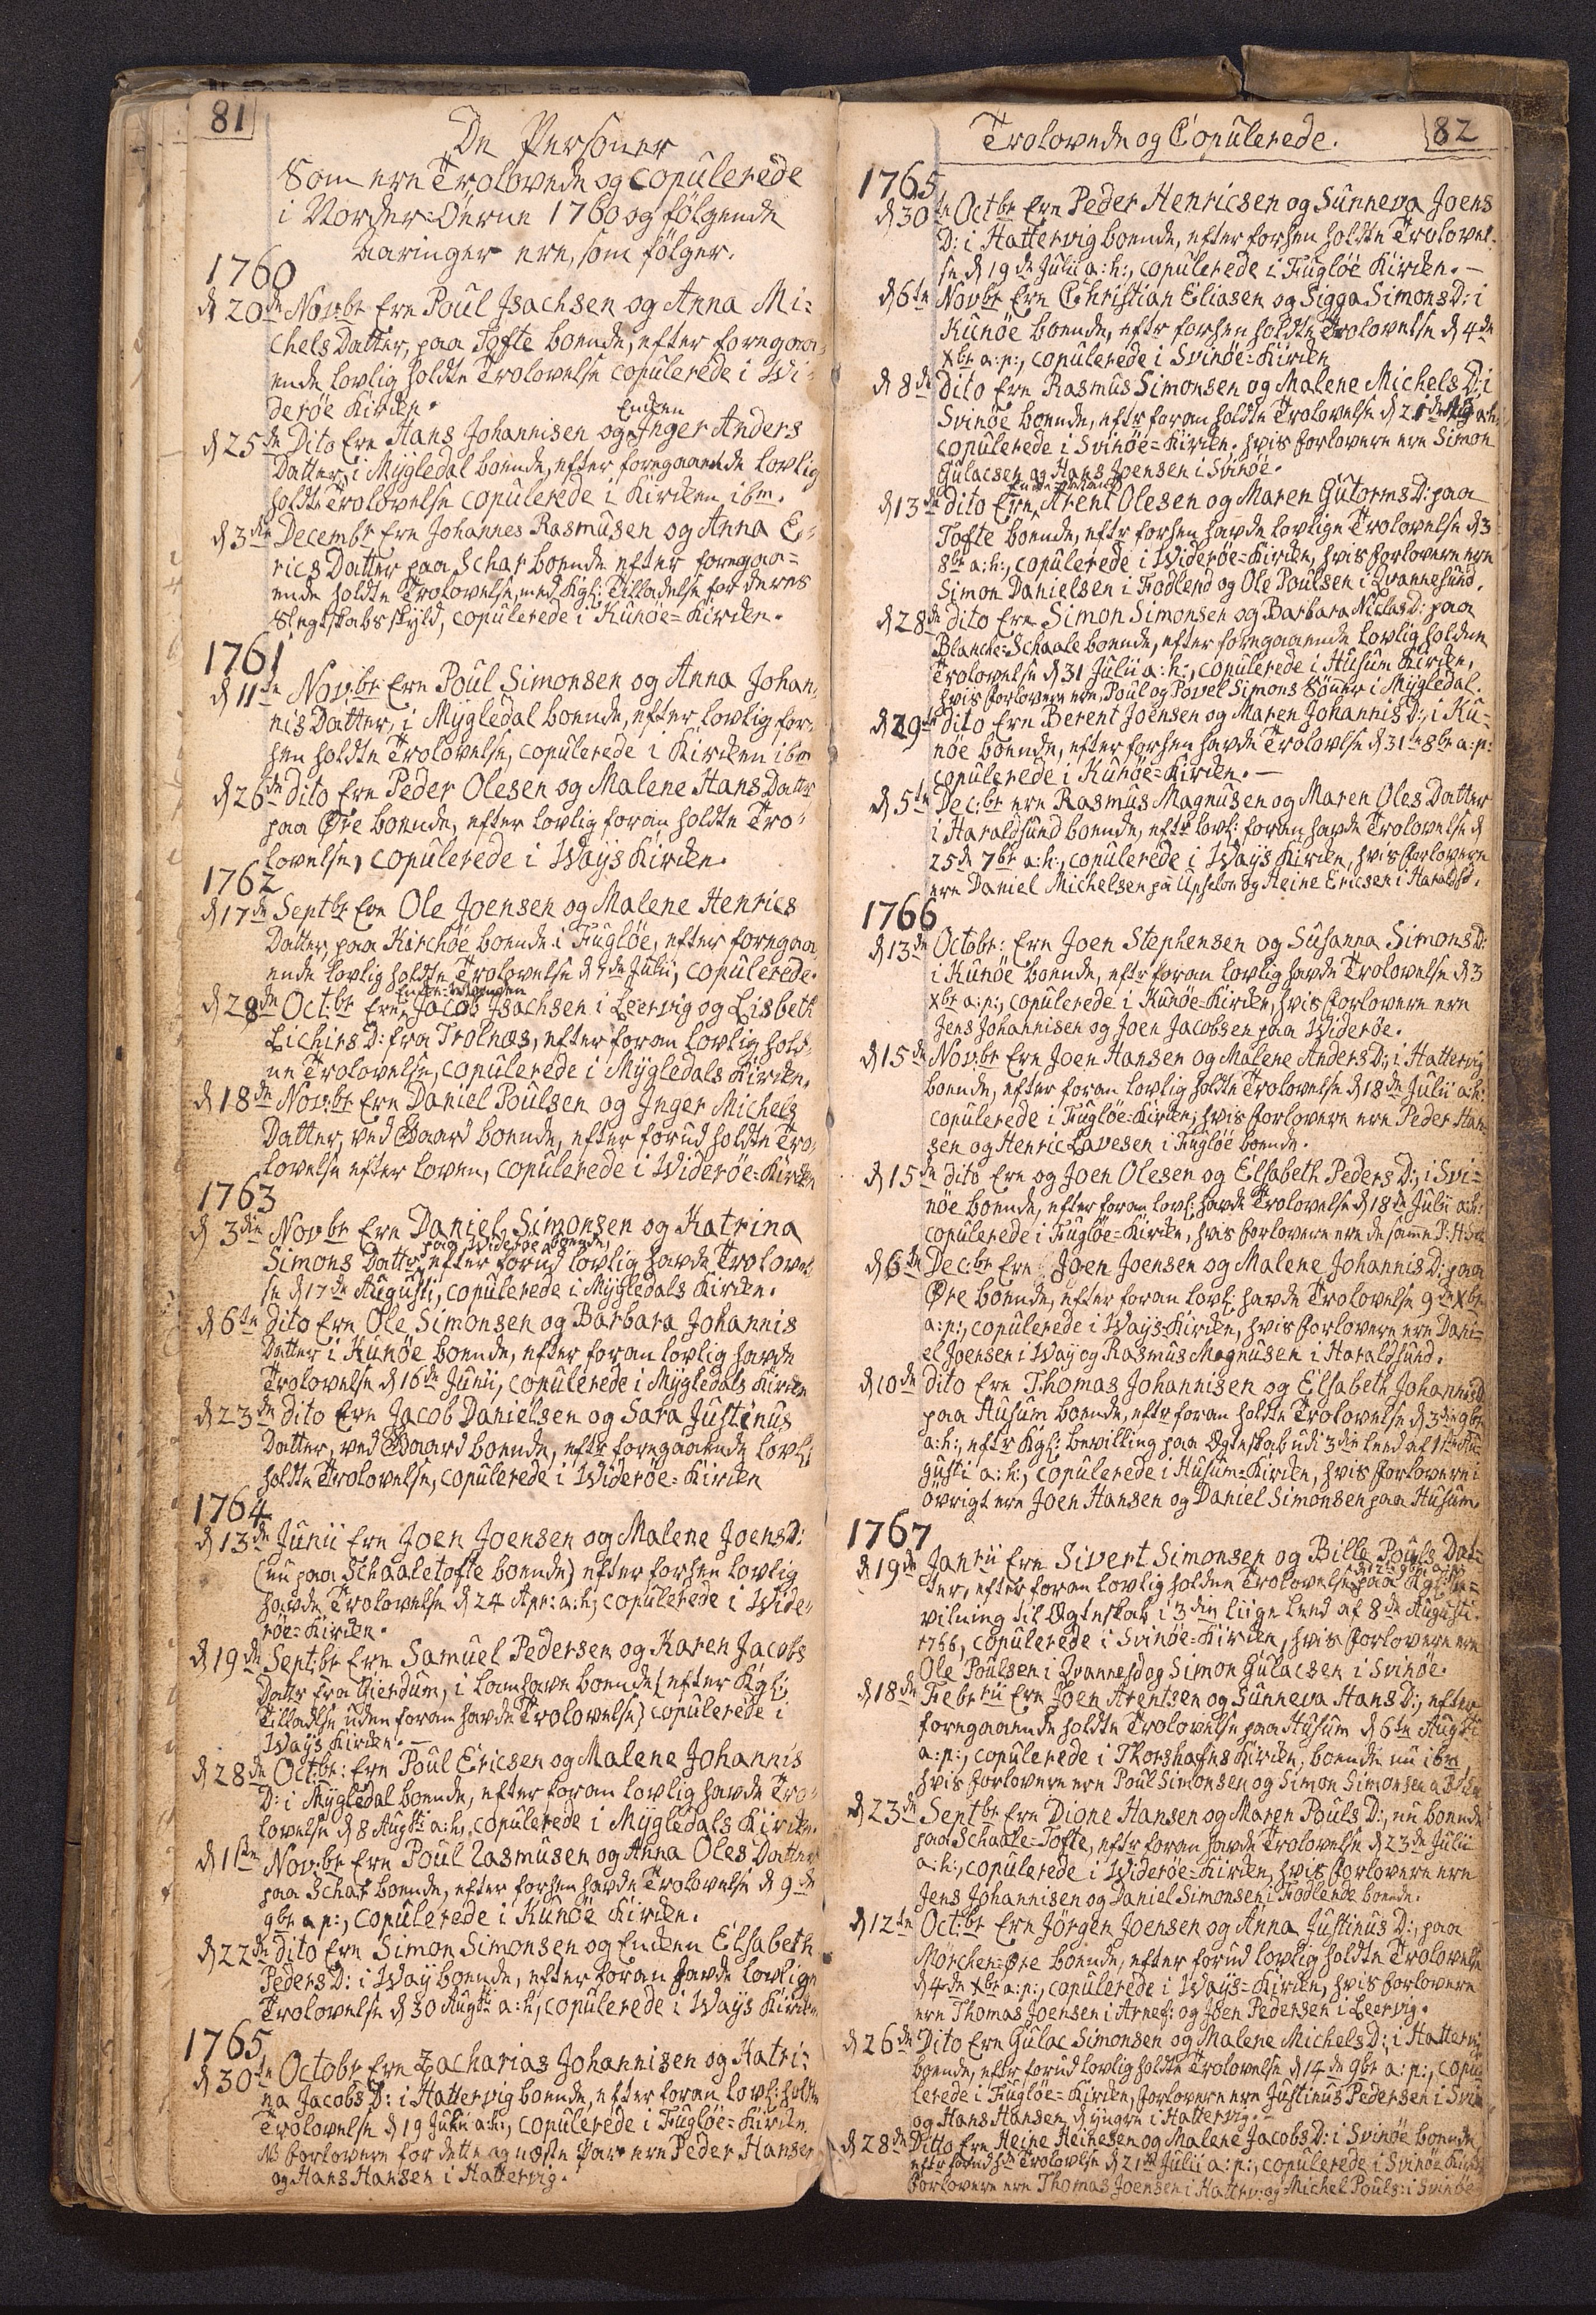 81
De Personer
Som ere Trolovede og copulerede
i Norder-Øerne 1760 og følgende
Aaringer ere, som følger.
1760
d 20de Novbr Ere Poul Jsachsen og Anna Mi-
chels Datter, paa Tofte boende, efter foregaa-
ende lovlig holdte Trolovelse copulerede i Wi-
derøe Kirken.
Enken
d 25de Dito Ere Hans Johannisen og Jnger Anders
Datter, i Mygledal boende, efter foregaaende lovlig
holdte Trolovelse copulerede i Kirken ibm.
d 3die Decembr Ere Johannes Rasmusen og Anna E-
rics Datter paa Schar boende efter foregaa-
ende holdte Trolovelse, med Kgl: Tilladelse for deres
Slegtskabs skyld, copulerede i Kunøe-Kirken.
1761
d 11te Novbr Ere Poul Simonsen og Anna Johan-
nis Datter, i Mygledal boende, efter lovlig for-
hen holdte Trolovelse, copulerede i Kirken ibm
d 26de dito Ere Peder Olesen og Malene Hans Datter
paa Øre boende, efter lovlig foran holdte Tro-
lovelse, copulerede i Ways Kirken.
1762
d 17de Septbr Ere Ole Joensen og Malene Henrics
Datter, paa Kirchøe boende i Fugløe, efter foregaa-
ende lovlig holdte Trolovelse d 7de Julii, copulerede.
Enke-Manden
d 28de Oct:br Ere Jacob Jsachsen i Leervig og Lisbeth
Lichirs D: fra Trolnæs, efter foran lovlig hold-
ne Trolovelse, copulerede i Mygledals Kirken.
d 18de Nov:br Ere Daniel Poulsen og Jnger Michels
Datter, ved Gaard boende, efter forud holdte Tro-
lovelse efter loven, copulerede i Widerøe-Kirken
1763
d 3die Novbr Ere Daniel Simonsen og Katrina
paa Widerøe boende,
Simons Dattr, efter forud lovlig havde Trolovel-
se d 17de Augusti, copulerede i Mygledals Kirken.
d 6te dito Ere Ole Simonsen og Barbara Johannis
Datter i Kunøe boende, efter foran lovlig havde
Trolovelse d 16de Junii, copulerede i Mygledals Kirken
d 23de dito Ere Jacob Danielsen og Sara Justinus
Datter, ved Gaard boende, eftr foregaaende lovl:
holdte Trolovelse, copulerede i Widerøe-Kirken
1764
d 13de Junii Ere Joen Joensen og Malene Joens D:
(nu paa Schaaletofte boende) efter forhen lovlig
havde Trolovelse d 24 Apr: a:h:, copulerede i Wide-
røe-Kirken.
d 19de Sept:br Ere Samuel Pedersen og Karen Jacobs
Dattr fra Giendum, i Lamhave boende (efter Kgl:
Tilladelse uden foran havde Trolovelse) copulerede i
Ways Kirken. —
d 28de Octbr: Ere Poul Ericsen og Malene Johannis
D: i Mygledal boende, efter foran lovlig havde Tro-
lovelse d 8 Augsti a:h:, copulerede i Mygledals Kirken.
d 1ste Nov:br Ere Poul Rasmusen og Anna Oles Datter
paa Schar boende, efter forhen havde Trolovelse d 9de
9br a p:, copulerede i Kunøe Kirken.
d 22de dito Ere Simon Simonsen og Enken Elsabeth
Peders D: i Way boende, efter foran havde lovlige
Trolovelse d 30 Augsti a:h:, copulerede i Ways Kirken
1765
d 30te Octobr Ere Zacharias Johannisen og Katri-
na Jacobs D: i Hattervig boende, efter foran lovl: holdte
Trolovelse d 19 Julii a:h:, copulerede i Fugløe-Kirken
NB forlovere for dette og næste Par ere Peder Hansen
og Hans Hansen i Hattervig.
Trolovede og Copulerede.
82
1765
d 30te Octbr Ere Peder Henricsen og Sunneva Joens
D: i Hattervig boende, efter forhen holdte Trolovel-
se d 19de Julii a:h:, copulerede i Fugløe Kirken. —
d 6te Novbr Ere Christian Eliasen og Sigga Simons D: i
Kunøe boende, eftr forhen holdte Trolovelse d 4de
Xbr a:p:, copulerede i Svinøe-Kirken
d 8de Dito Ere Rasmus Simonsen og Malene Michels D: i
Svinøe boende, eftr foran holdte Trolovelse d 21de
copulerede i Svinøe-Kirken. hvis forlovere ere Simon
Gulacsen og Hans Joensen i Svinøe.
d 13de dito Ere Arent Olesen og Maren Gutorms D: paa
Tofte boende, eftr forhen havde lovlige Trolovelse d 3
8br a:h:, copulerede i Widerøe-Kirken, hvis forlovere ere
Simon Danielsen i Fodlend og Ole Poulsen i Qvannesund.
d 28de dito Ere Simon Simonsen og Barbara Niclas D: paa
Blanche-Schaale boende, efter foregaaende lovlig holdne
Trolovelse d 31 Julii a:h:, copulerede i Husum Kirken,
hvis forlovere ere Poul og Povel Simons Sønner i Mygledal.
d 29de dito Ere Berent Joensen og Maren Johannis D:, i Ku-
nøe boende, efter forhen havde Trolovelse d 31te 8br a:p:
copulerede i Kunøe-Kirken. —
d 5te Dec:br ere Rasmus Magnusen og Maren Oles Datter
i Haraldsund boende, eftr lovl: foran havde Trolovelse d
25de 7br a:h:, copulerede i Ways Kirken, hvis forlovere
ere Daniel Michelsen på Upsalen og Heine Ericsen i Haraldsd.
1766
d 13de Octobr: Ere Joen Stephensen og Susanna Simons D:
i Kunøe boende, eftr foran lovlig havde Trolovelse d 3
Xbr a:p:, copulerede i Kunøe-Kirken, hvis forlovere ere
Jens Johannisen og Joen Jacobsen paa Widerøe.
d 15de Nov:br Ere Joen Hansen og Malene Anders D:, i Hattervig
boende, efter foran lovlig holdte Trolovelse d 18de Julii a:h:
copulerede i Fugløe-Kirken, hvis forlovere ere Peder Han-
sen og Henric Lavesen i Fugløe boende.
d 15de dito Ere og Joen Olesen og Elsabeth Peders D:, i Svi-
nøe boende, efter foran lovl: havde Trolovelse d 18de Julii a:h:
copulerede i Fugløe-Kirken, hvis forlovere ere de samme
d 6te Dec:br Ere Joen Joensen og Malene Johannis D: paa
Øre boende, efter foran lovl: havde Trolovelse 9de Xbr
a:p:, copulerede i Ways-Kirken, hvis forlovere ere Dani-
el Joensen i Way og Rasmus Magnusen i Haraldsund.
d 10de dito Ere Thomas Johannisen og Elsabeth Johannis D
paa Husum boende, eftr foran holdte Trolovelse d 3die 9br
a:h:, eftr Kgl: bevilling paa Ægteskab udi 3die leed af 1ste Au-
gusti a:h:, copulerede i Husum-Kirken, hvis forlovere i
øvrigt ere Joen Hansen og Daniel Simonsen paa Husum.
1767
d 19de Janrii Ere Sivert Simonsen og Bille Pouls Dat-
ter, efter foran lovlig holden Trolovelse paa Kgl: be-
vilning til Ægteskab i 3die liige leed af 8de Augusti
1766, copulerede i Svinøe-Kirken, hvis forlovere ere
Ole Poulsen i Qvannesd og Simon Gulacsen i Svinøe.
d 18de Febrii Ere Joen Arentsen og Sunneva Hans D:, efter
foregaaende holdte Trolovelse paa Husum d 6te Augsti
a:p:, copulerede i Thorshafns Kirken, boende nu ibm
hvis forlovere ere Poul Simonsen og Simon Simonsen
d 23de Septbr Ere Dione Hansen og Maren Pouls D:, nu boende
paa Schaale-Tofte, eftr foran havde Trolovelse d 23de Julii
a:h:, copulerede i Widerøe-Kirken, hvis forlovere ere
Jens Johannisen og Daniel Simonsen i Fodlende boende.
d 12te Oct:br Ere Jörgen Joensen og Anna Justinus D:, paa
Morchen-Øre boende, efter forud lovlig holdte Trolovelse
d 4de Xbr a:p:, copulerede i Ways-Kirken, hvis forlovere
ere Thomas Joensen i Arnef: og Joen Pedersen i Leervig.
d 26de Dito Ere Gulac Simonsen og Malene Michels D:, i Hattervig
boende, eftr forud lovlig holdte Trolovelse d 14de 9br a:p:, copu-
lerede i Fugløe-Kirken, forlovere ere Justinus Pedersen i Svinøe
og Hans Hansen d yngre i Hattervig. —
d 28de Ditto Ere Heine Heinesen og Malene Jacobs D: i Svinøe boende
eftr forud h: Trolovelse d 21de Julii a:p:, copulerede i Svinøe Kirken
forlovere ere Thomas Joensen i Hatterv: og Michel Pouls: i Svinøe